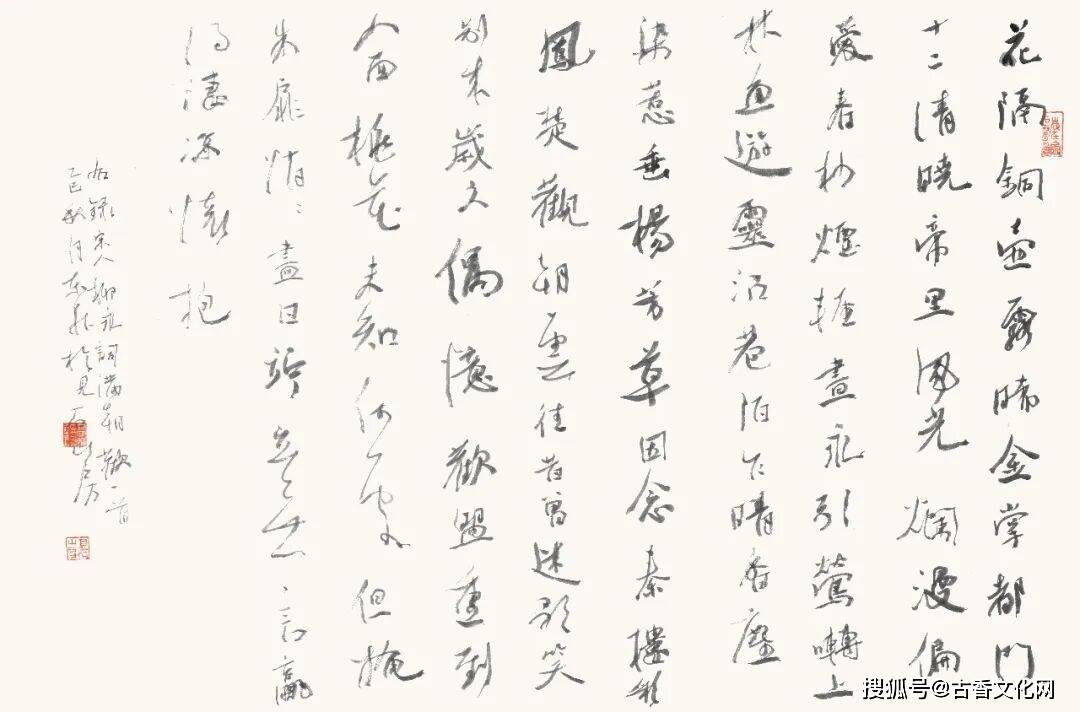 花隔銅壺露晞金掌都門
十二清曉帝里風光爛漫偏
愛春杪煙輕晝永引鶯囀上
林魚遊靈沼巷陌乍晴香塵
染惹垂楊芳草因念秦樓彩
鳳楚觀朝雲往昔曾迷歌笑
別來歲久偶憶歡盟重到
人面桃花未知何處但掩
朱扉悄悄盡日竚立無言贏
得淒涼懷抱
右錄宋人柳永詞滿朝歡一首
乙巳秋月於見石山房
搜狐号@古香文化网